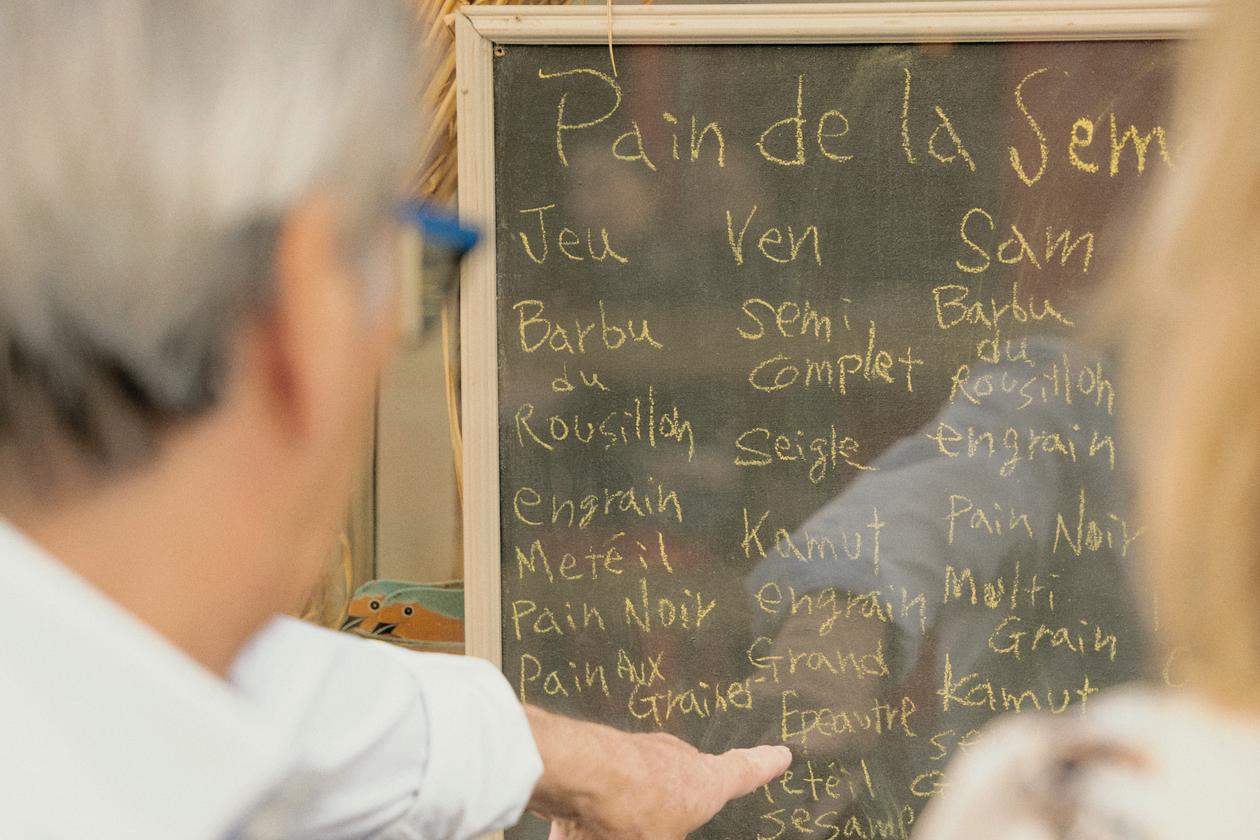 Pain de la Sem
Jeu
Barbu
du
Rousillon
engrain
Metéil
Pain Noir
Pain Aux
Graines
Ven
Semi
Complet
Seigle
Kamut
engrain
Grand
Epeautre
etéil
sesame
Sam
Barbu
du
Rousillon
engrain
Pain Noir
Multi
Grain
Kamut